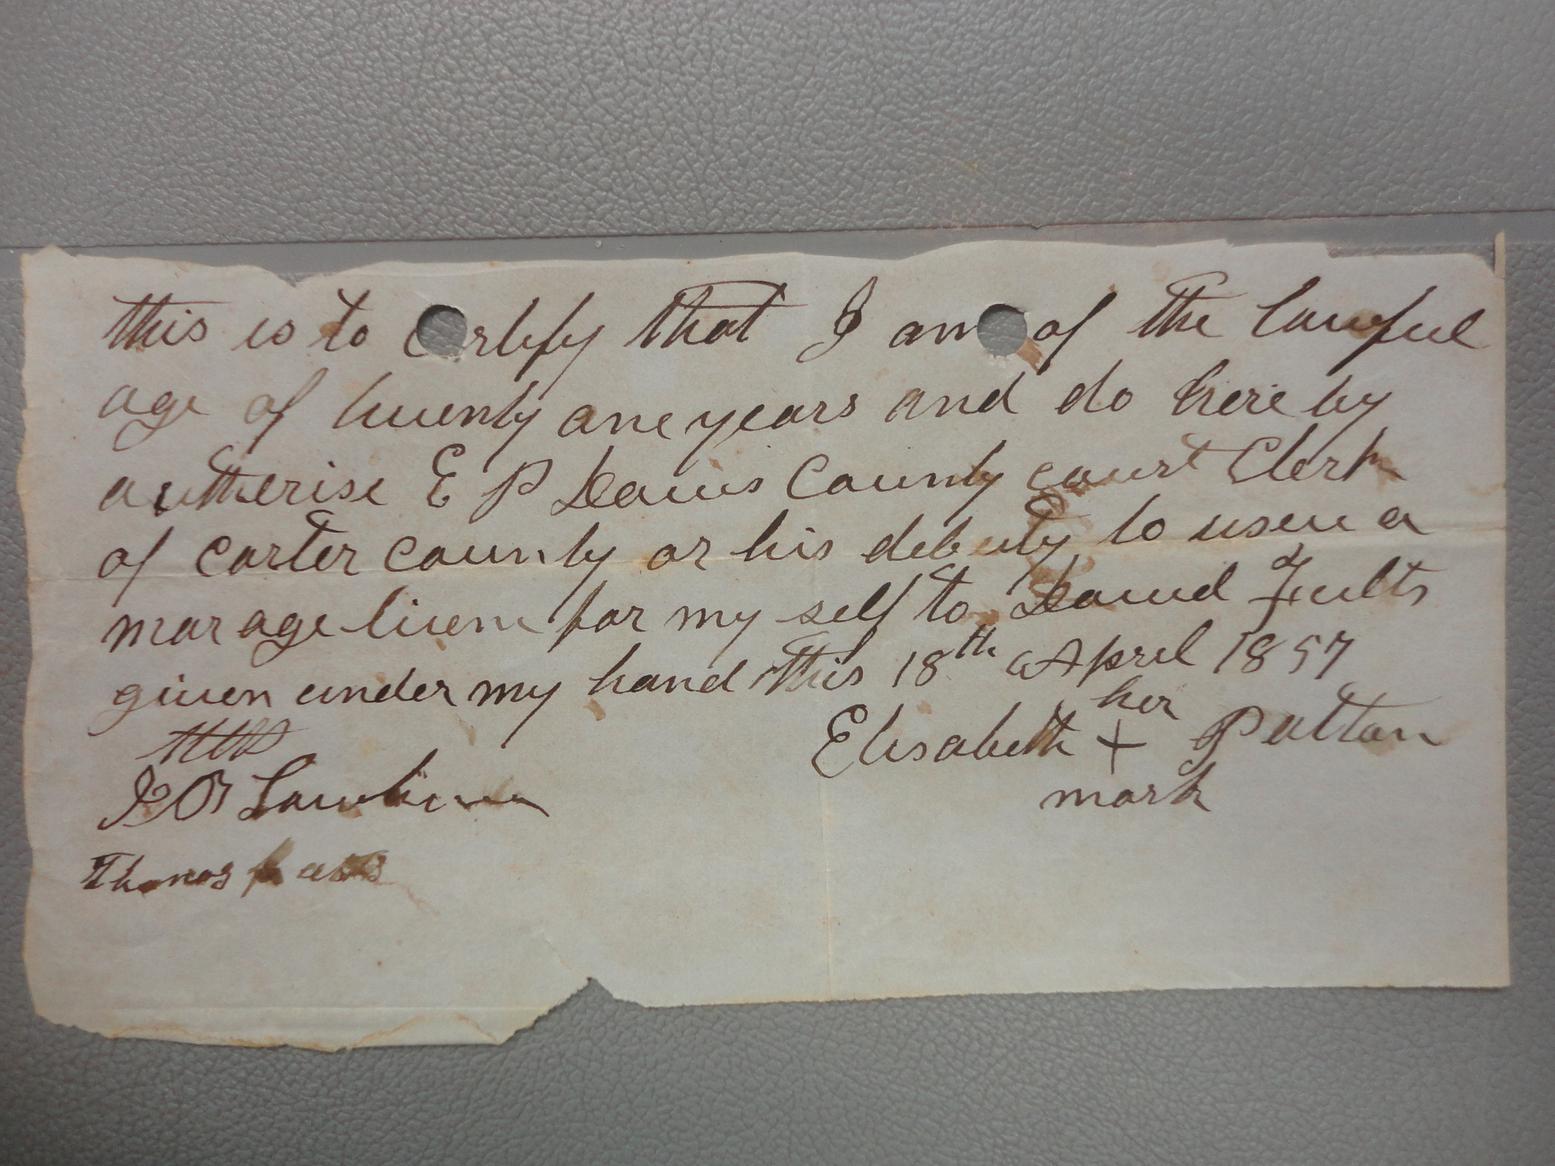 this is to c rtify that I am of the lawful
age of twenty one years and do here by
autherise E P Davis County court Clerk
of carter county or his debuty to usen a
marage licen for my self to David Fults
given under my hand this 18th April 1857
her
Elisabeth + Patton
mark
Att
Thomas